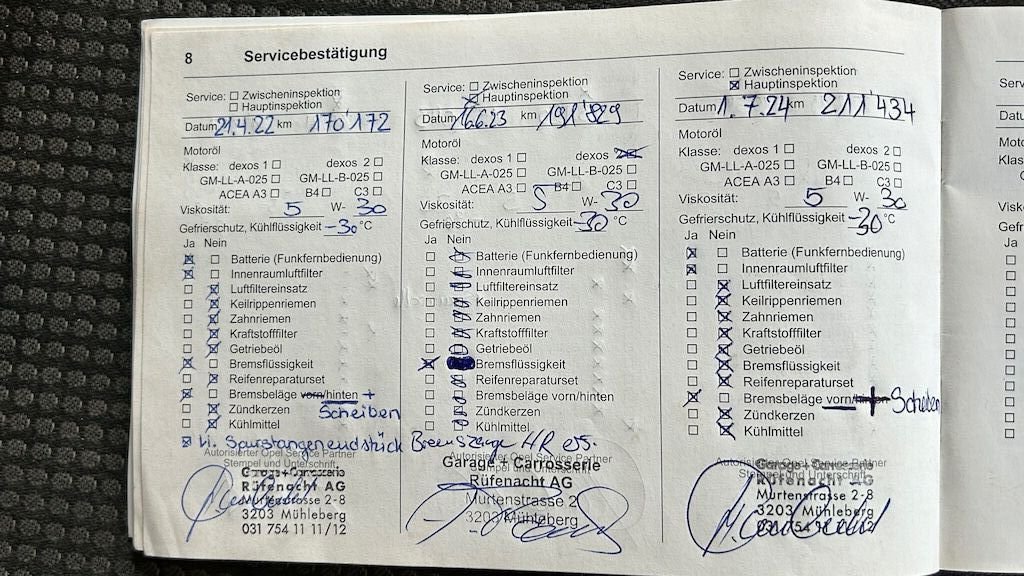 8 Servicebestätigung
Service: ☐ Zwischeninspektion
☐ Hauptinspektion
Datum 21.4.22 km 170'172
Motoröl
Klasse: dexos 1 ☐ dexos 2 ☐
GM-LL-A-025 ☐ GM-LL-B-025 ☐
ACEA A3 ☐ B4 ☐ C3 ☐
Viskosität: 5 W- 30
Gefrierschutz, Kühlflüssigkeit -30 °C
Ja Nein
☒ ☐ Batterie (Funkfernbedienung)
☒ ☐ Innenraumluftfilter
☐ ☒ Luftfiltereinsatz
☐ ☒ Keilrippenriemen
☐ ☒ Zahnriemen
☐ ☒ Kraftstofffilter
☐ ☒ Getriebeöl
☒ ☐ Bremsflüssigkeit
☐ ☒ Reifenreparaturset
☒ ☐ Bremsbeläge vorn/hinten +
Scheiben
☐ ☒ Zündkerzen
☐ ☒ Kühlmittel
☒ Spurstangenendstück Bremszange HR ers.
Autorisierter Opel Service Partner
Stempel und Unterschrift
Garage + Carrosserie
Rüfenacht AG
Murtenstrasse 2-8
3203 Mühleberg
031 754 11 11/12
Service: ☐ Zwischeninspektion
☒ Hauptinspektion
Datum 16.6.23 km 191'829
Motoröl
Klasse: dexos 1 ☐ dexos 2 ☒
GM-LL-A-025 ☐ GM-LL-B-025 ☐
ACEA A3 ☐ B4 ☐ C3 ☐
Viskosität: 5 W- 30
Gefrierschutz, Kühlflüssigkeit -30 °C
Ja Nein
Batterie (Funkfernbedienung)
Innenraumluftfilter
Luftfiltereinsatz
Keilrippenriemen
Zahnriemen
Kraftstofffilter
Getriebeöl
☒ Bremsflüssigkeit
Reifenreparaturset
Bremsbeläge vorn/hinten
Zündkerzen
Kühlmittel
Autorisierter Opel Service Partner
Garage + Carrosserie
Rüfenacht AG
Murtenstrasse 2
3203 Mühleberg
Service: ☐ Zwischeninspektion
☒ Hauptinspektion
Datum 1.7.24 km 211'434
Motoröl
Klasse: dexos 1 ☐ dexos 2 ☐
GM-LL-A-025 ☐ GM-LL-B-025 ☐
ACEA A3 ☐ B4 ☐ C3 ☐
Viskosität: 5 W- 30
Gefrierschutz, Kühlflüssigkeit -30 °C
Ja Nein
☒ ☐ Batterie (Funkfernbedienung)
☒ ☐ Innenraumluftfilter
☐ ☒ Luftfiltereinsatz
☐ ☒ Keilrippenriemen
☐ ☒ Zahnriemen
☐ ☒ Kraftstofffilter
☐ ☒ Getriebeöl
☐ ☒ Bremsflüssigkeit
☐ ☒ Reifenreparaturset
☒ ☐ Bremsbeläge vorn/hinten + Scheiben
☐ ☒ Zündkerzen
☐ ☒ Kühlmittel
Autorisierter Opel Service Partner
Stempel und Unterschrift
Garage + Carrosserie
Rüfenacht AG
Murtenstrasse 2-8
3203 Mühleberg
031 754 11 11/12
Service:
Datu
Motor
Klass
Visko
Gefri
Ja